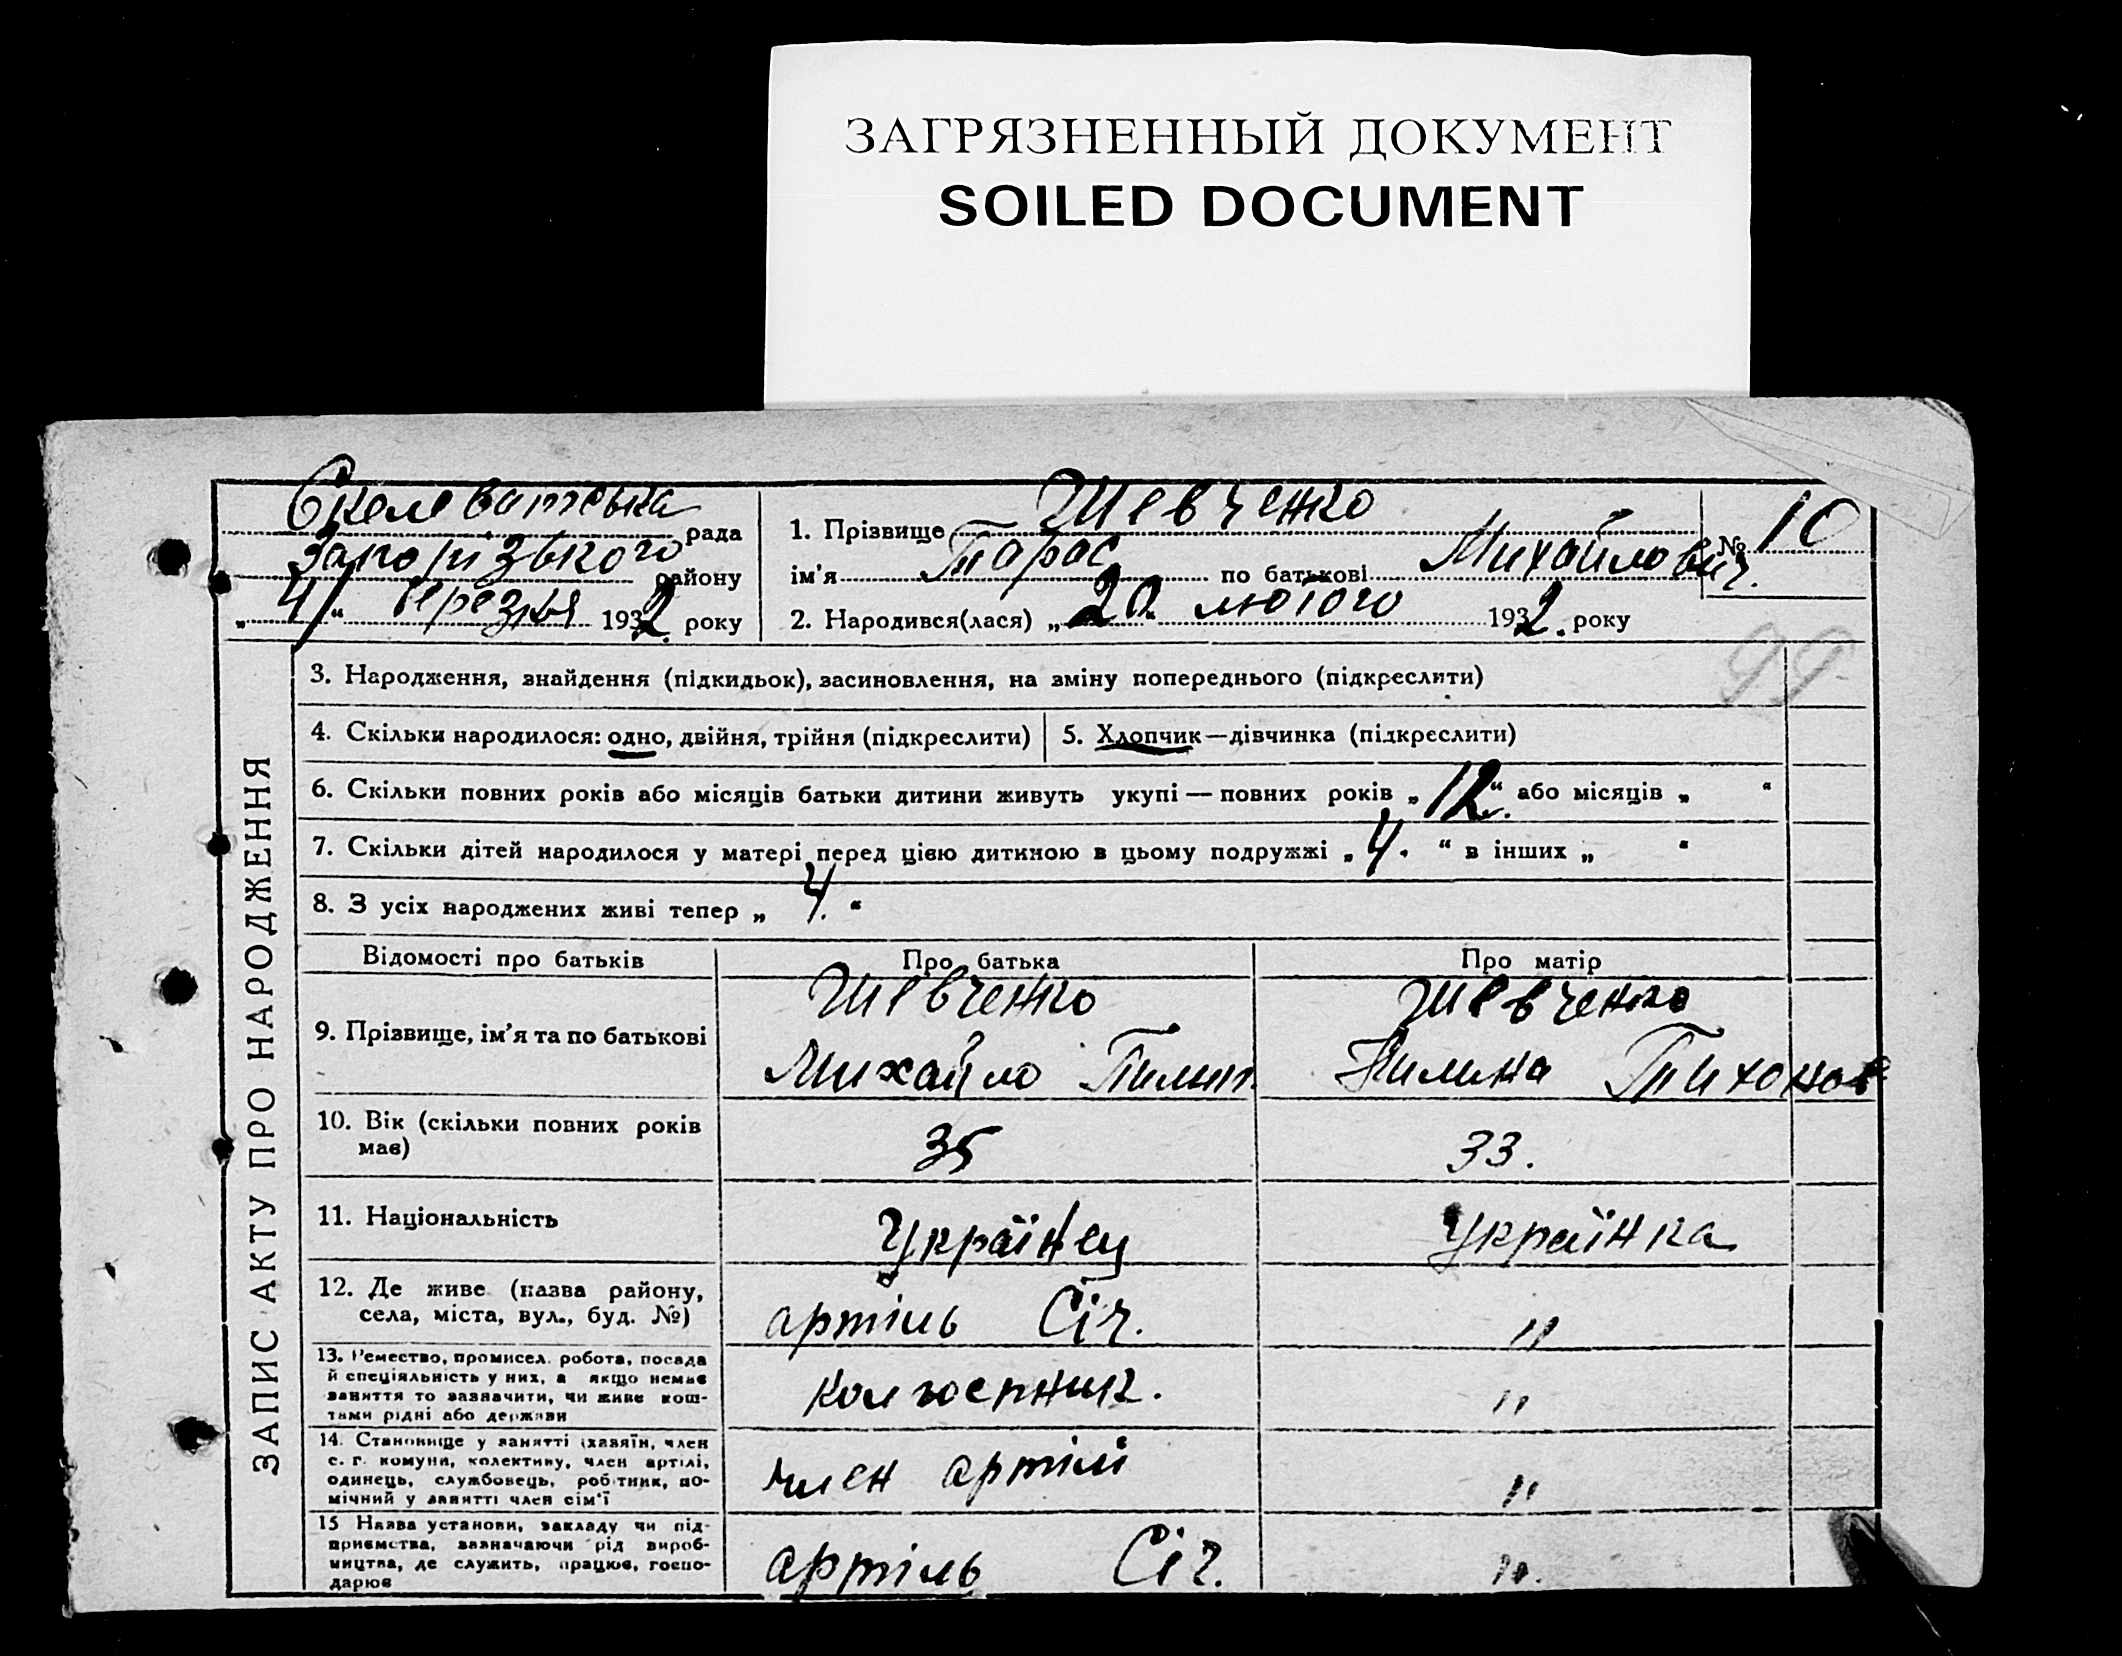 ЗАГРЯЗНЕННЫЙ ДОКУМЕНТ
SOILED DOCUMENT
Скелеватська рада
Запорізького району
„4“ березня 1932. року
1. Прізвище Шевченко
№ 10
ім'я Тарас по батькові Михайлович.
2. Народився(лася) „20“ лютого 1932. року
99
ЗАПИС АКТУ ПРО НАРОДЖЕННЯ
3. Народження, знайдення (підкидьок), засиновлення, на зміну попереднього (підкреслити)
4. Скільки народилося: одно, двійня, трійня (підкреслити)
5. Хлопчик—дівчинка (підкреслити)
6. Скільки повних років або місяців батьки дитини живуть укупі — повних років „12.“ або місяців „ “
7. Скільки дітей народилося у матері перед цією дитиною в цьому подружжі „4.“ в інших „ “
8. З усіх народжених живі тепер „4.“
Відомості про батьків
Про батька
Про матір
9. Прізвище, ім'я та по батькові
Шевченко
Михайло Пилип
Шевченко
Тихонов
10. Вік (скільки повних років
має)
35
33.
11. Національність
Українец
Українка
12. Де живе (назва району,
села, міста, вул., буд. №)
артіль Січ.
"
13. Ремество, промисел, робота, посада
й спеціяльність у них, а якщо немає
заняття то зазначити, чи живе кош-
тами рідні або держави
колгоспник.
"
14. Становище у занятті (хазяїн, член
с. г. комуни, колективу, член артілі,
одинець, службовець, робітник, по-
мічний у занятті член сім'ї
член артілі
"
15 Назва установи, закладу чи під-
приємства, зазначаючи рід вироб-
ництва, де служить, працює, госпо-
дарює
артіль Січ.
".